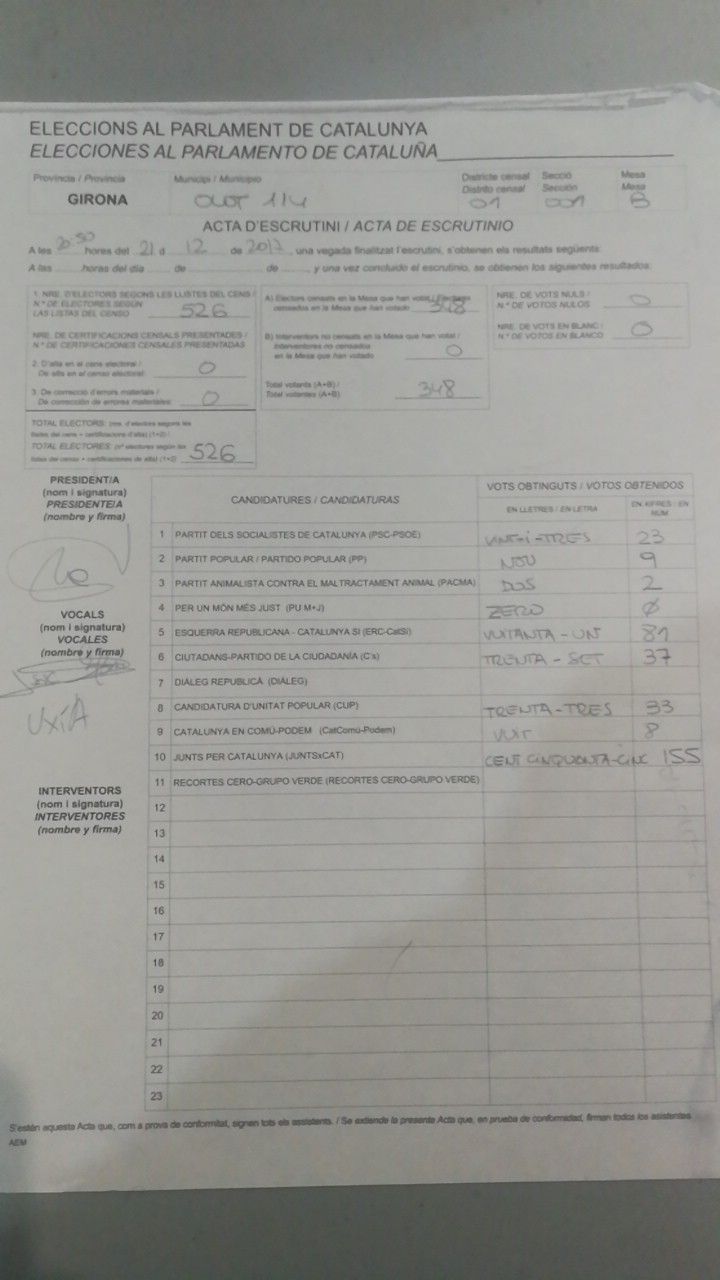 ELECCIONS AL PARLAMENT DE CATALUNYA
ELECCIONES AL PARLAMENTO DE CATALUÑA
Província / Provincia Municipi / Municipio Districte censal Secció Mesa
Distrito censal Sección Mesa
GIRONA OLOT 114 01 001 B
ACTA D'ESCRUTINI / ACTA DE ESCRUTINIO
A les 20:50 hores del 21 d 12 de 2017, una vegada finalitzat l'escrutini, s'obtenen els resultats següents:
A las horas del día de de , y una vez concluido el escrutinio, se obtienen los siguientes resultados:
1. NRE. D'ELECTORS SEGONS LES LLISTES DEL CENS /
N.º DE ELECTORES SEGÚN
LAS LISTAS DEL CENSO 526
NRE. DE CERTIFICACIONS CENSALS PRESENTADES /
N.º DE CERTIFICACIONES CENSALES PRESENTADAS
2. D'alta en el cens electoral /
De alta en el censo electoral: 0
3. De correcció d'errors materials /
De corrección de errores materiales: 0
TOTAL ELECTORS: (nre. d'electors segons les
llistes del cens + certificacions d'alta) (1+2) /
TOTAL ELECTORES: (nº electores según las
listas del censo + certificaciones de alta) (1+2) 526
A) Electors censats en la Mesa que han votat / Electores
censados en la Mesa que han votado 348
B) Interventors no censats en la Mesa que han votat /
Interventores no censados
en la Mesa que han votado 0
Total votants (A+B) /
Total votantes (A+B) 348
NRE. DE VOTS NULS /
N.º DE VOTOS NULOS 0
NRE. DE VOTS EN BLANC /
N.º DE VOTOS EN BLANCO 0
PRESIDENT/A
(nom i signatura)
PRESIDENTE/A
(nombre y firma)
VOCALS
(nom i signatura)
VOCALES
(nombre y firma)
UXÍA
INTERVENTORS
(nom i signatura)
INTERVENTORES
(nombre y firma)
CANDIDATURES / CANDIDATURAS VOTS OBTINGUTS / VOTOS OBTENIDOS
EN LLETRES / EN LETRA EN XIFRES / EN NUM
1 PARTIT DELS SOCIALISTES DE CATALUNYA (PSC-PSOE) VINT-I-TRES 23
2 PARTIT POPULAR / PARTIDO POPULAR (PP) NOU 9
3 PARTIT ANIMALISTA CONTRA EL MALTRACTAMENT ANIMAL (PACMA) DOS 2
4 PER UN MÓN MÉS JUST (PUM+J) ZERO 0
5 ESQUERRA REPUBLICANA - CATALUNYA SI (ERC-CatSí) VUITANTA-UN 81
6 CIUTADANS-PARTIDO DE LA CIUDADANÍA (C's) TRENTA-SET 37
7 DIÀLEG REPUBLICÀ (DIÀLEG)
8 CANDIDATURA D'UNITAT POPULAR (CUP) TRENTA-TRES 33
9 CATALUNYA EN COMÚ-PODEM (CatComú-Podem) VUIT 8
10 JUNTS PER CATALUNYA (JUNTSxCAT) CENT CINQUANTA-CINC 155
11 RECORTES CERO-GRUPO VERDE (RECORTES CERO-GRUPO VERDE)
12
13
14
15
16
17
18
19
20
21
22
23
S'estén aquesta Acta que, com a prova de conformitat, signen tots els assistents. / Se extiende la presente Acta que, en prueba de conformidad, firman todos los asistentes.
AEM